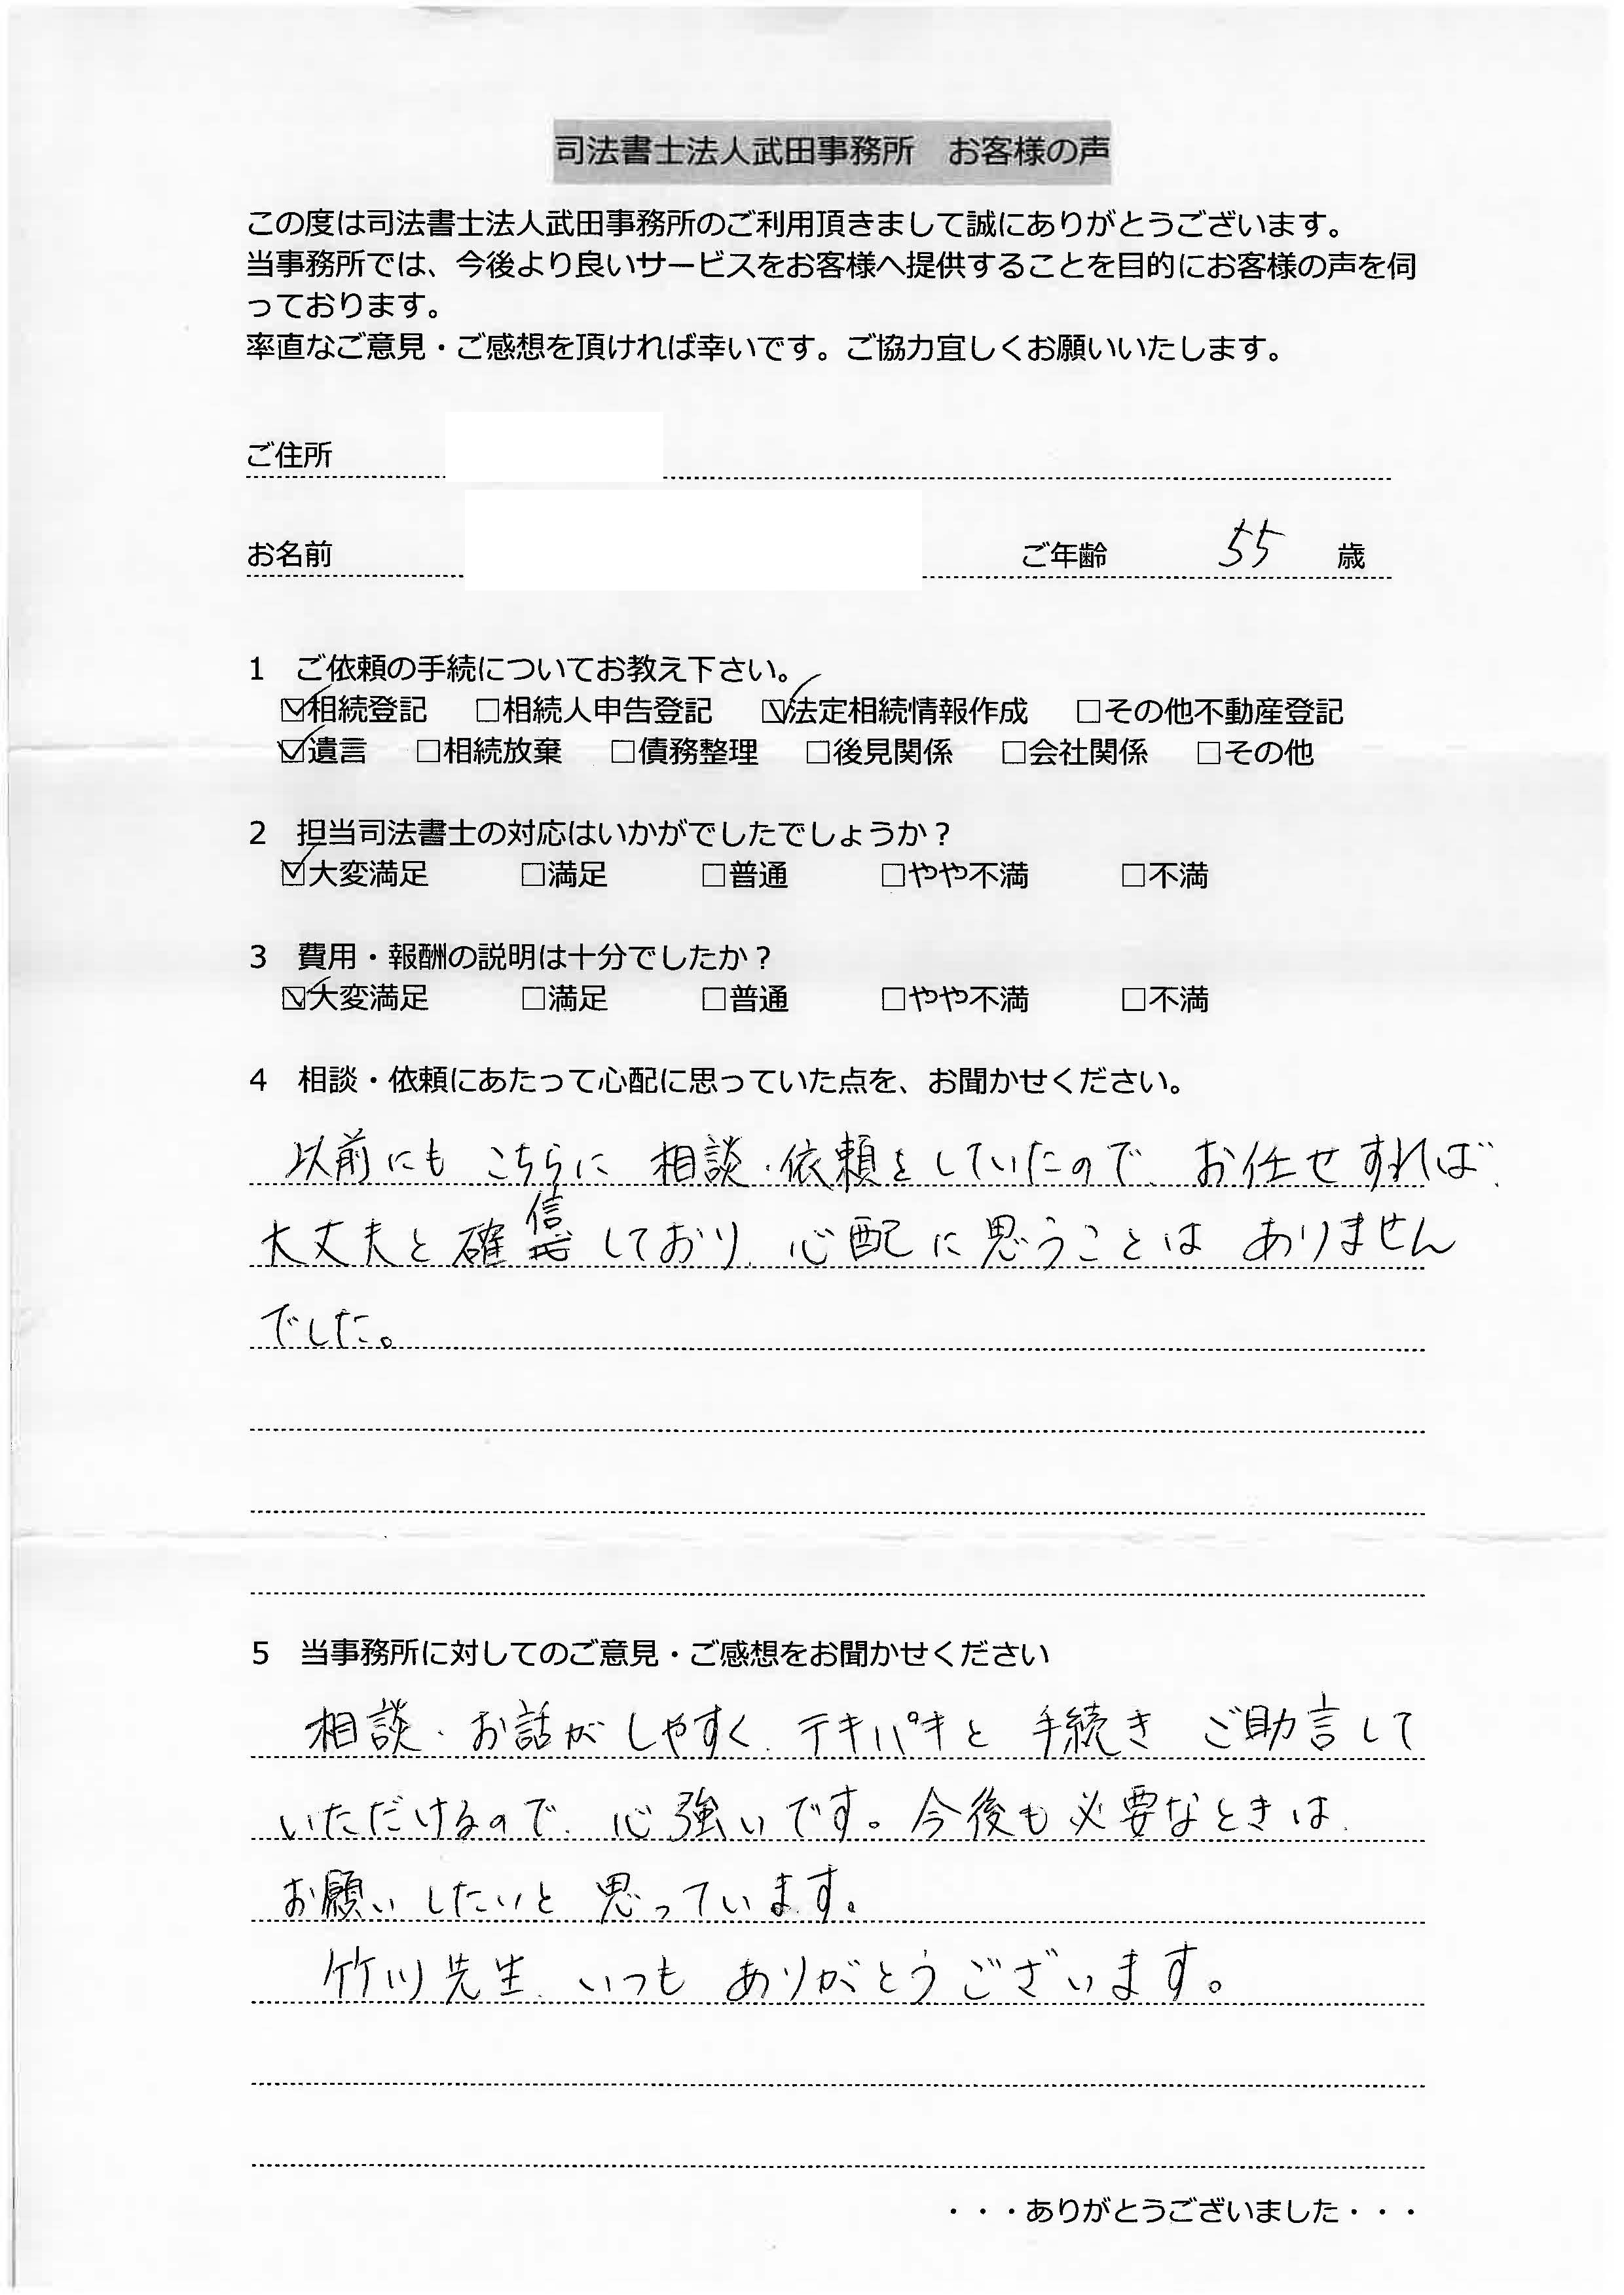 司法書士法人武田事務所　お客様の声
この度は司法書士法人武田事務所のご利用頂きまして誠にありがとうございます。
当事務所では、今後より良いサービスをお客様へ提供することを目的にお客様の声を伺
っております。
率直なご意見・ご感想を頂ければ幸いです。ご協力宜しくお願いいたします。
ご住所
お名前　ご年齢　55　歳
1　ご依頼の手続についてお教え下さい。
☑相続登記　□相続人申告登記　☑法定相続情報作成　□その他不動産登記
☑遺言　□相続放棄　□債務整理　□後見関係　□会社関係　□その他
2　担当司法書士の対応はいかがでしたでしょうか？
☑大変満足　□満足　□普通　□やや不満　□不満
3　費用・報酬の説明は十分でしたか？
☑大変満足　□満足　□普通　□やや不満　□不満
4　相談・依頼にあたって心配に思っていた点を、お聞かせください。
以前にも こちらに 相談・依頼をしていたので、お任せすれば、
大丈夫と確信しており、心配に思うことは ありません
でした。
5　当事務所に対してのご意見・ご感想をお聞かせください
相談・お話がしやすく、テキパキと 手続き ご助言して
いただけるので、心強いです。今後も必要なときは、
お願いしたいと 思っています。
竹川先生、いつも ありがとうございます。
・・・ありがとうございました・・・